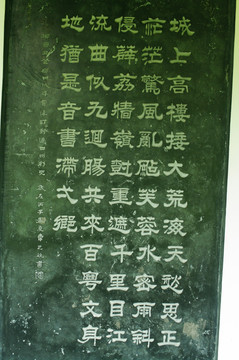 城上高樓接大荒海天愁思正
茫茫驚風亂颭芙蓉水密雨斜
侵薜荔牆嶺樹重遮千里目江
流曲似九迴腸共來百粵文身
地猶是音書滯弌鄉
四州刺史